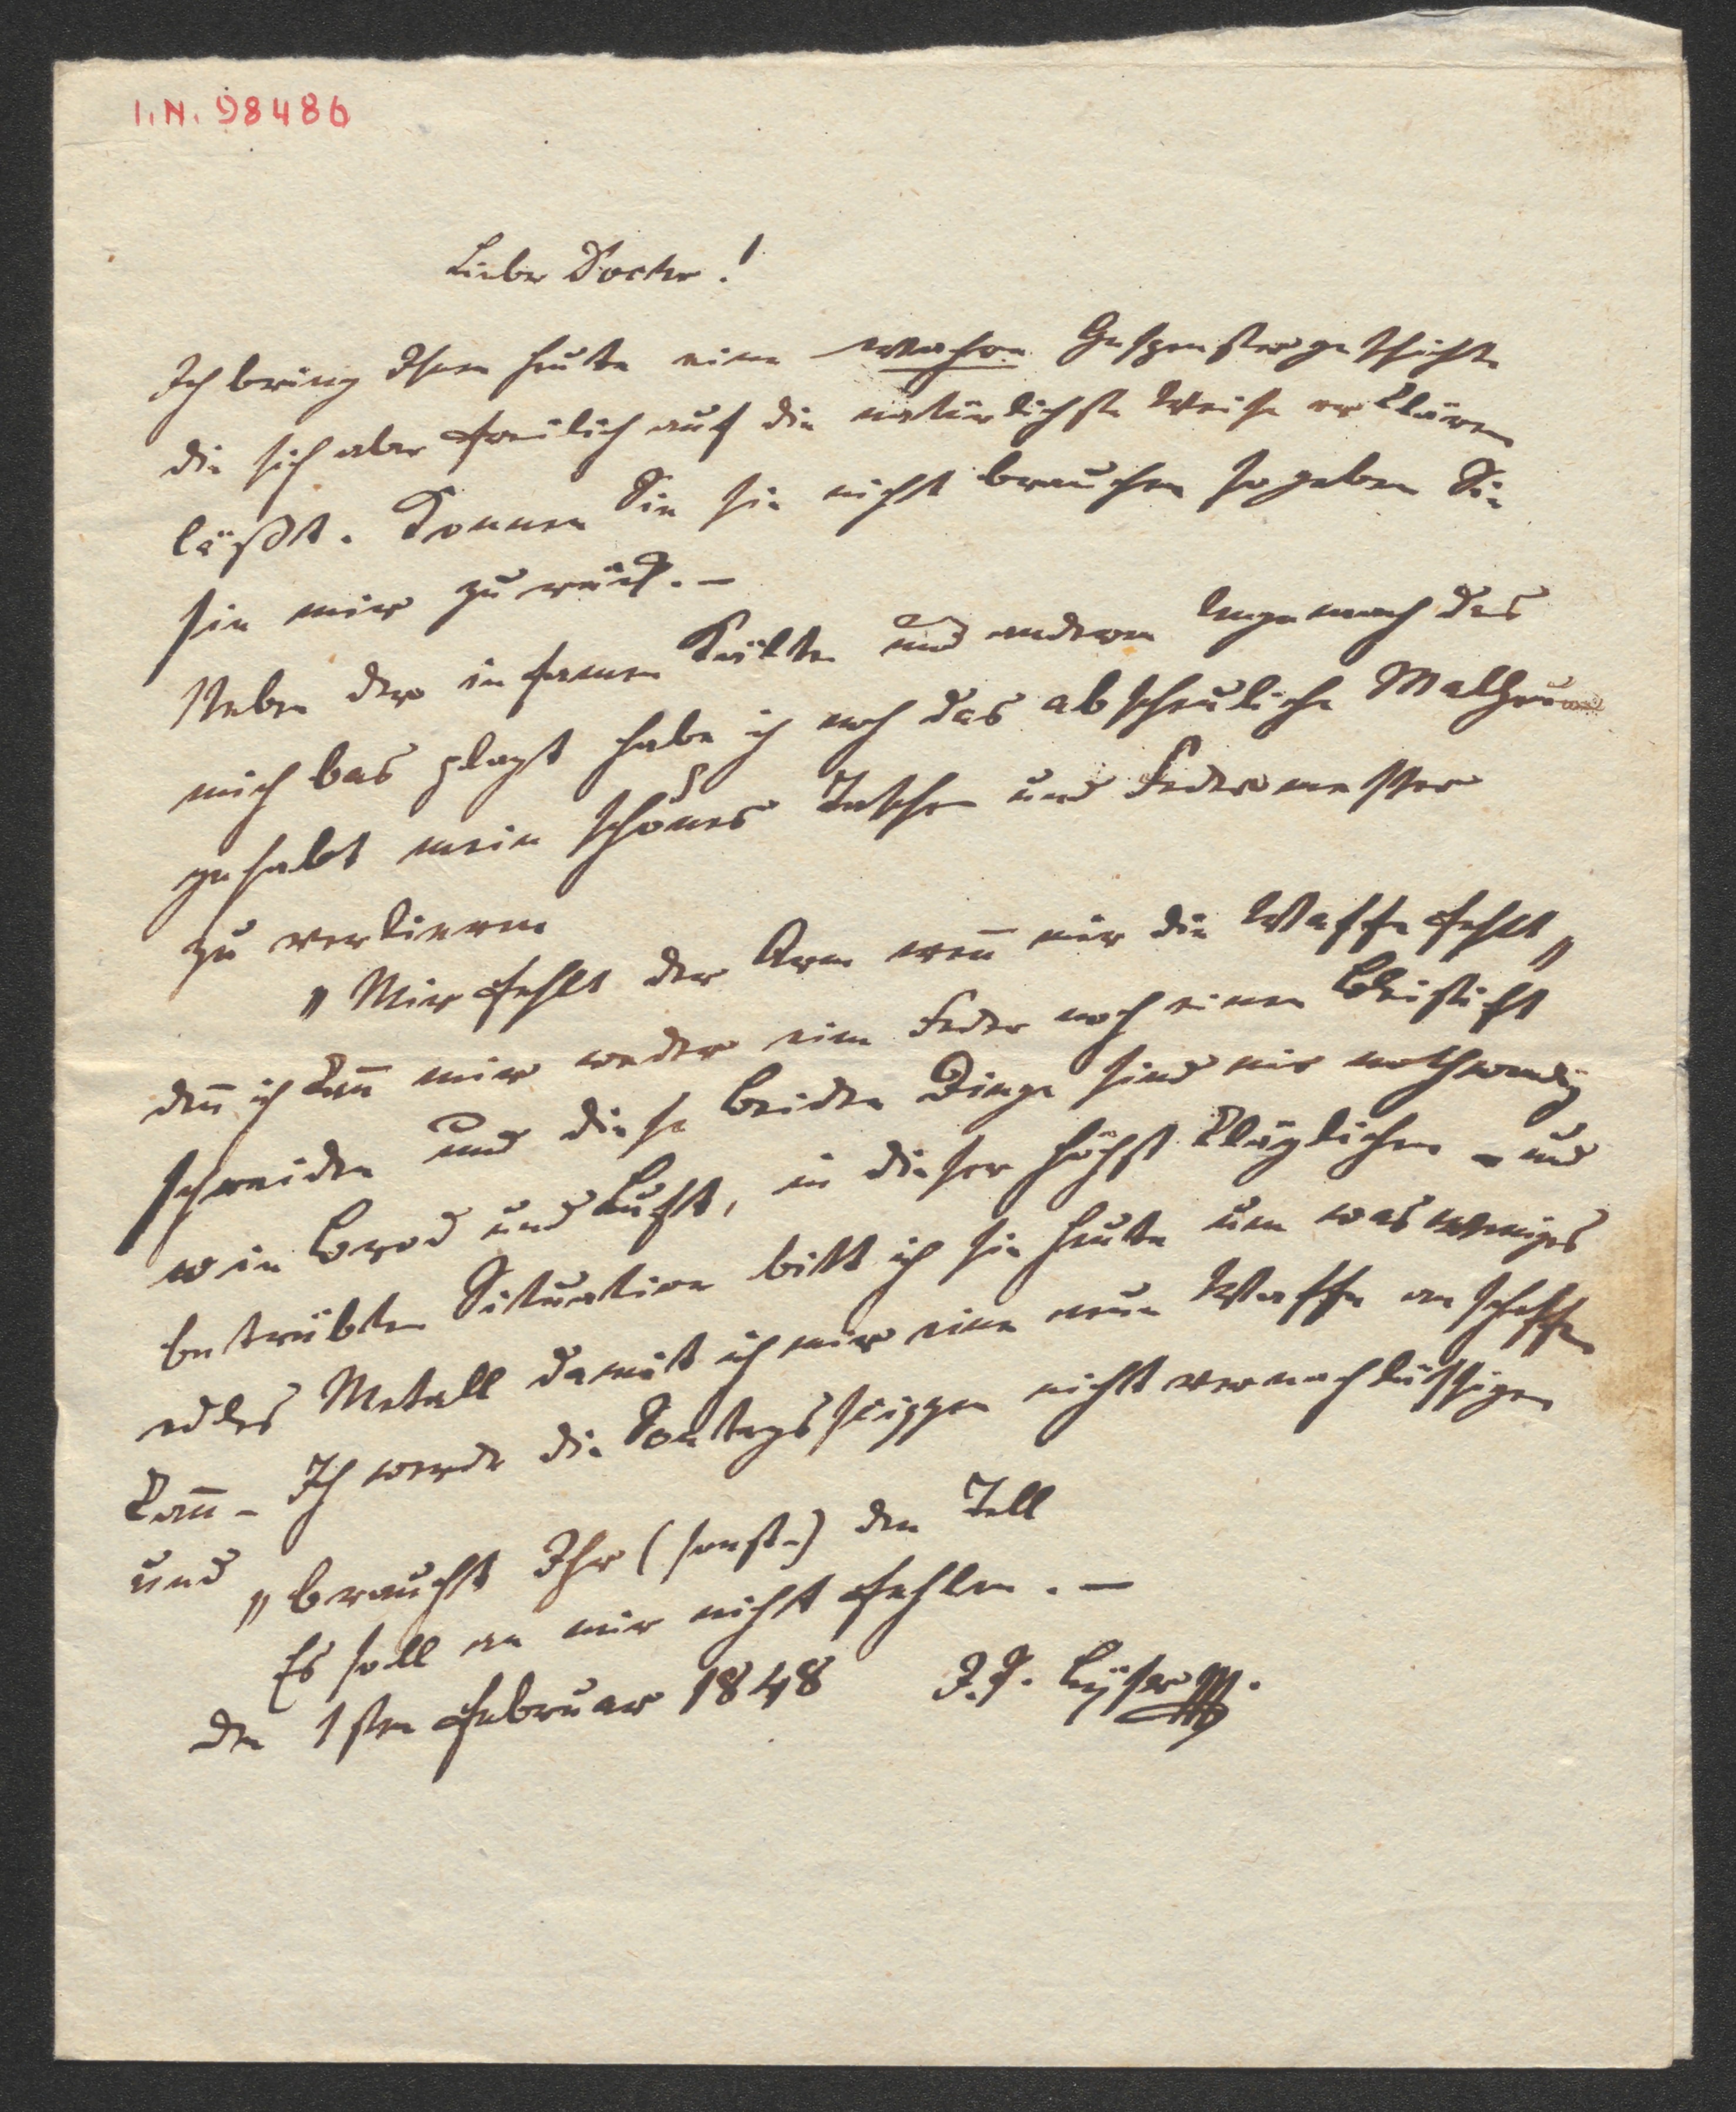 I.N. 98486
Lieber Doctor!
Ich bring Ihnen heute eine wahre Gespenstergeschichte
die sich aber freilich auf die natürlichste Weise erklären
läßt. Können Sie sie nicht brauchen so geben Sie
sie mir zurück. —
Neben der infamen Kälte und anderen Ungemach das
mich bas plagt habe ich noch das abscheuliche Malheur
gehabt mein schönes Taschen und Federmesser
zu verlieren
„Mir fehlt der Arm wen̄ mir die Waffe fehlt„
den̄ ich kan̄ mir weder eine Feder noch einen Bleistift
schneiden und diese beiden Dinge sind mir nothwendig
wie Brod und Luft, in dieser höchst kläglichen und
betrübten Situation bitt ich sie heute um was weniges
edles Metall damit ich mir eine neue Waffe anschaffen
kan̄ – Ich werde die Sontagsskizzen nicht vernachlässigen
und „braucht Ihr (sonst) den Tell
Es soll an mir nicht fehlen. —
den 1sten Februar 1848 J.P. Lyser